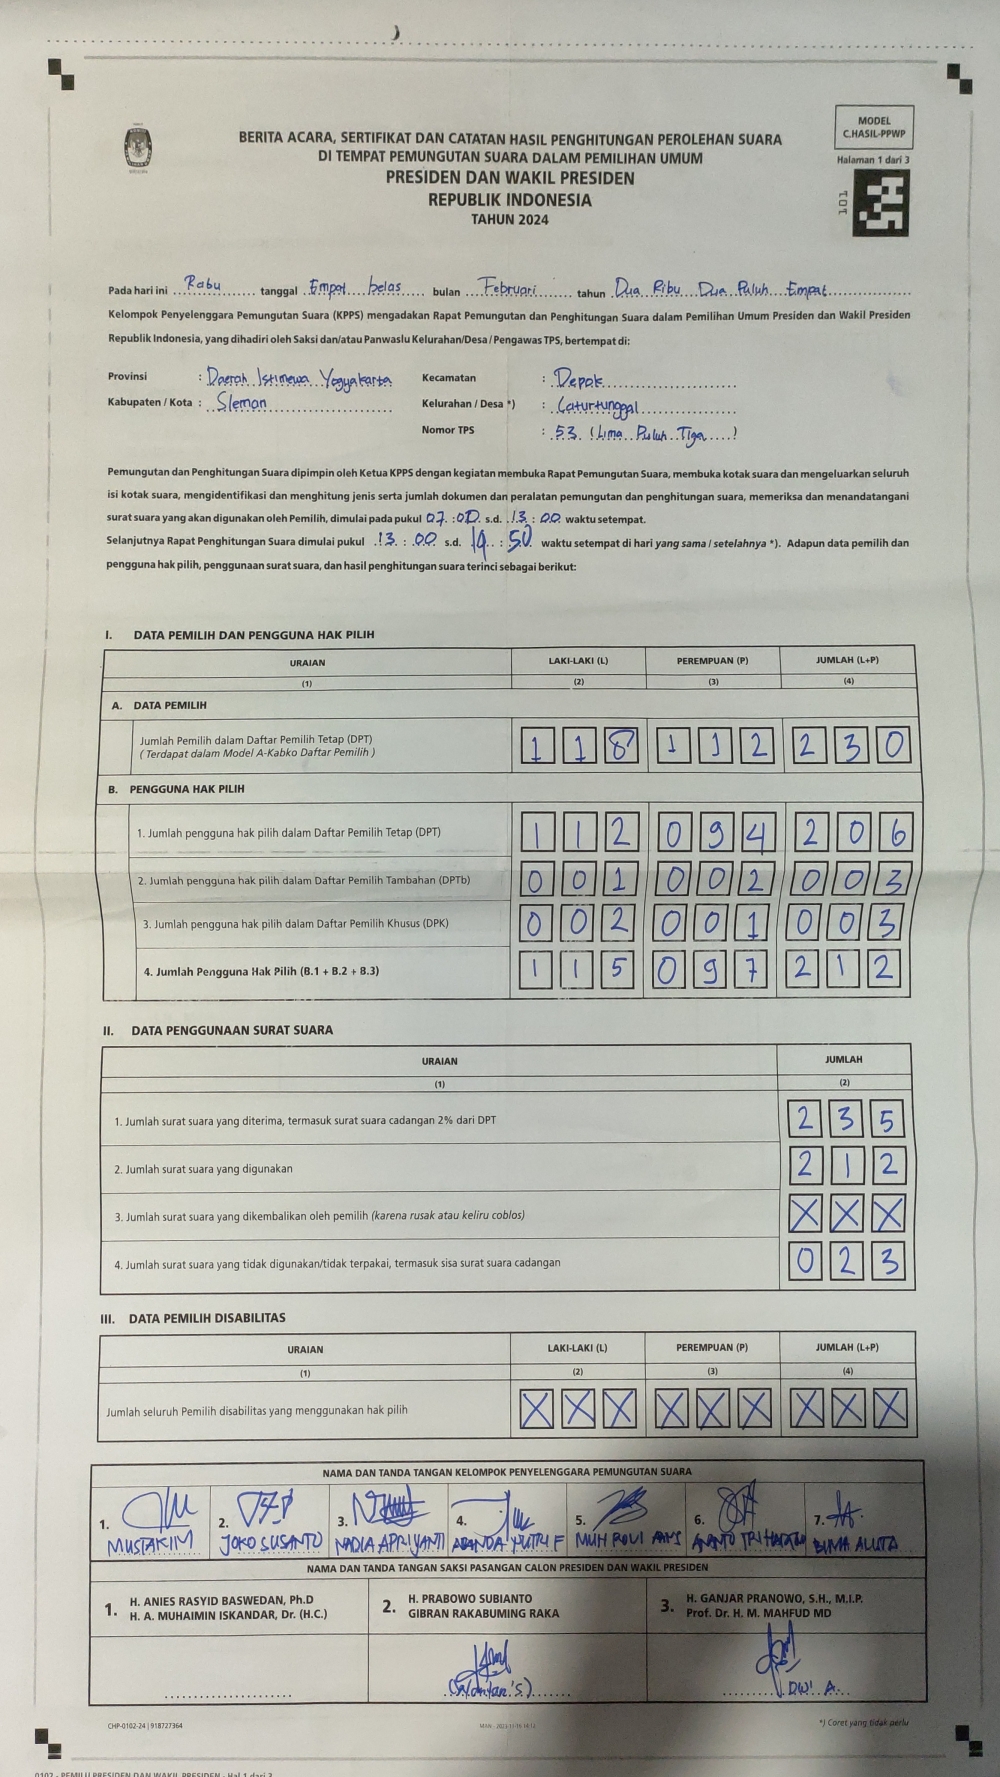 MODEL
C.HASIL-PPWP
Halaman 1 dari 3
101
BERITA ACARA, SERTIFIKAT DAN CATATAN HASIL PENGHITUNGAN PEROLEHAN SUARA
DI TEMPAT PEMUNGUTAN SUARA DALAM PEMILIHAN UMUM
PRESIDEN DAN WAKIL PRESIDEN
REPUBLIK INDONESIA
TAHUN 2024
Pada hari ini Rabu tanggal Empat belas bulan Februari tahun Dua Ribu Dua Puluh Empat
Kelompok Penyelenggara Pemungutan Suara (KPPS) mengadakan Rapat Pemungutan dan Penghitungan Suara dalam Pemilihan Umum Presiden dan Wakil Presiden
Republik Indonesia, yang dihadiri oleh Saksi dan/atau Panwaslu Kelurahan/Desa / Pengawas TPS, bertempat di:
Provinsi : Daerah Istimewa Yogyakarta Kecamatan : Depok
Kabupaten / Kota : Sleman Kelurahan / Desa *) : Caturtunggal
Nomor TPS : 53 (Lima Puluh Tiga)
Pemungutan dan Penghitungan Suara dipimpin oleh Ketua KPPS dengan kegiatan membuka Rapat Pemungutan Suara, membuka kotak suara dan mengeluarkan seluruh
isi kotak suara, mengidentifikasi dan menghitung jenis serta jumlah dokumen dan peralatan pemungutan dan penghitungan suara, memeriksa dan menandatangani
surat suara yang akan digunakan oleh Pemilih, dimulai pada pukul 07 : 00 s.d. 13 : 00 waktu setempat.
Selanjutnya Rapat Penghitungan Suara dimulai pukul 13 : 00 s.d. 19 : 50 waktu setempat di hari yang sama / setelahnya *). Adapun data pemilih dan
pengguna hak pilih, penggunaan surat suara, dan hasil penghitungan suara terinci sebagai berikut:
I. DATA PEMILIH DAN PENGGUNA HAK PILIH
URAIAN LAKI-LAKI (L) PEREMPUAN (P) JUMLAH (L+P)
(1) (2) (3) (4)
A. DATA PEMILIH
Jumlah Pemilih dalam Daftar Pemilih Tetap (DPT) 1 1 8 1 1 2 2 3 0
( Terdapat dalam Model A-Kabko Daftar Pemilih )
B. PENGGUNA HAK PILIH
1. Jumlah pengguna hak pilih dalam Daftar Pemilih Tetap (DPT) 1 1 2 0 9 4 2 0 6
2. Jumlah pengguna hak pilih dalam Daftar Pemilih Tambahan (DPTb) 0 0 1 0 0 2 0 0 3
3. Jumlah pengguna hak pilih dalam Daftar Pemilih Khusus (DPK) 0 0 2 0 0 1 0 0 3
4. Jumlah Pengguna Hak Pilih (B.1 + B.2 + B.3) 1 1 5 0 9 7 2 1 2
II. DATA PENGGUNAAN SURAT SUARA
URAIAN JUMLAH
(1) (2)
1. Jumlah surat suara yang diterima, termasuk surat suara cadangan 2% dari DPT 2 3 5
2. Jumlah surat suara yang digunakan 2 1 2
3. Jumlah surat suara yang dikembalikan oleh pemilih (karena rusak atau keliru coblos) X X X
4. Jumlah surat suara yang tidak digunakan/tidak terpakai, termasuk sisa surat suara cadangan 0 2 3
III. DATA PEMILIH DISABILITAS
URAIAN LAKI-LAKI (L) PEREMPUAN (P) JUMLAH (L+P)
(1) (2) (3) (4)
Jumlah seluruh Pemilih disabilitas yang menggunakan hak pilih X X X X X X X X X
NAMA DAN TANDA TANGAN KELOMPOK PENYELENGGARA PEMUNGUTAN SUARA
1. 2. 3. 4. 5. 6. 7.
MUSTAKIM JOKO SUSANTO NADIA APRIYANTI PUTRI F MUH BIMA
NAMA DAN TANDA TANGAN SAKSI PASANGAN CALON PRESIDEN DAN WAKIL PRESIDEN
1. H. ANIES RASYID BASWEDAN, Ph.D
H. A. MUHAIMIN ISKANDAR, Dr. (H.C.)
2. H. PRABOWO SUBIANTO
GIBRAN RAKABUMING RAKA
3. H. GANJAR PRANOWO, S.H., M.I.P.
Prof. Dr. H. M. MAHFUD MD
DWI A.
CHP-0102-24 | 918727364
*) Coret yang tidak perlu
0102 - PEMILU PRESIDEN DAN WAKIL PRESIDEN - Hal 1 dari 3